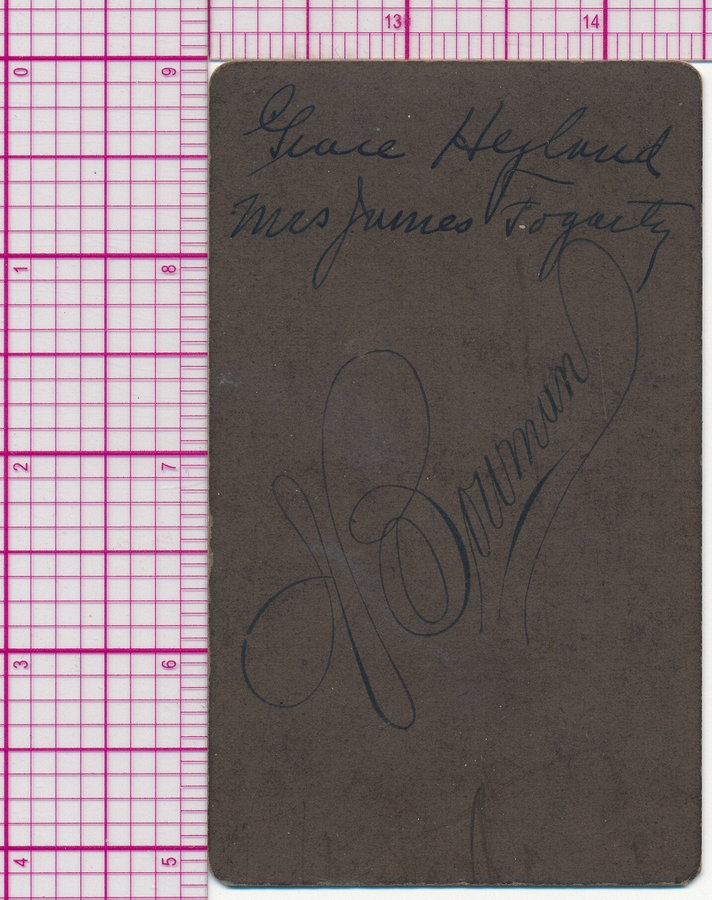 13 14
0 9
Grace Heyland
Mrs James Fogarty
1 8
Bowman
2 7
3 6
4 5